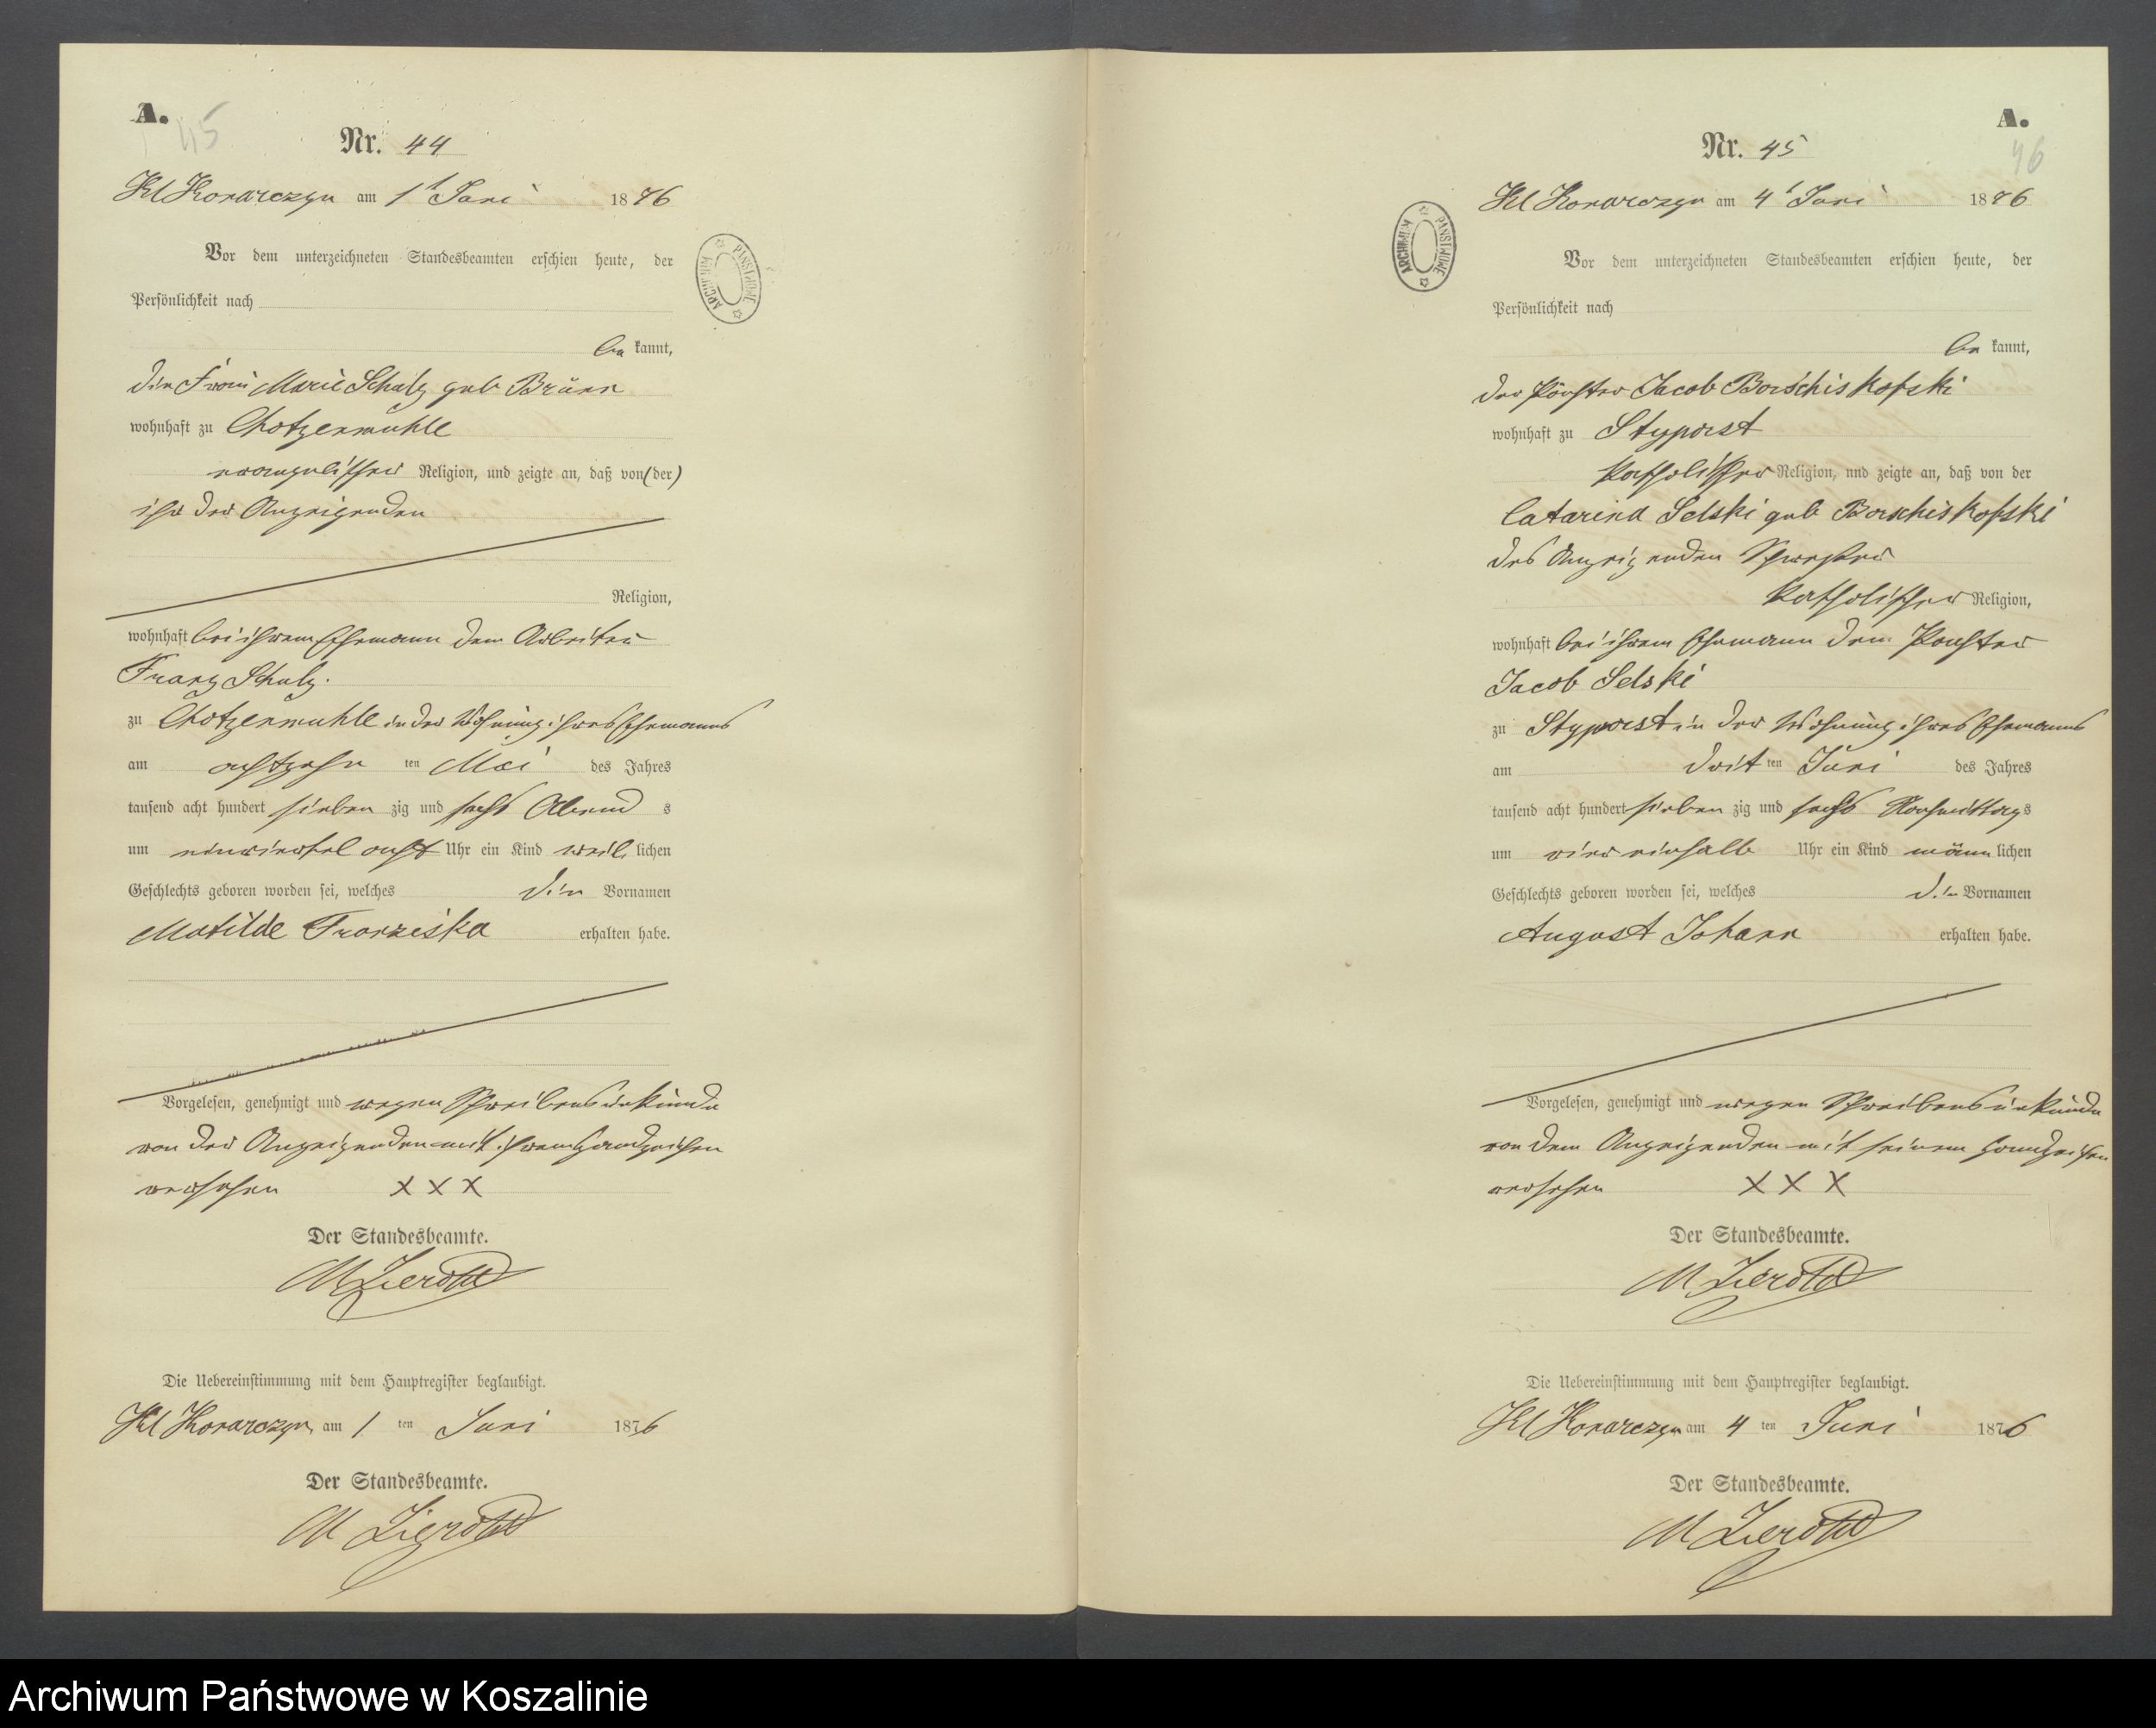 A.
45
Nr. 44
Kl Konarczyn am 1t Juni 1876
Vor dem unterzeichneten Standesbeamten erschien heute, der
Persönlichkeit nach
be kannt,
die Frau Marie Schulz geb Brünn
wohnhaft zu Chotzenmühle
evangelischer Religion, und zeigte an, daß von (der)
ihr der Anzeigenden
Religion,
wohnhaft bei ihrem Ehemann dem Arbeiter
Franz Schulz.
zu Chotzenmuhle in der Wohnung ihres Ehemanns
am achtzehn ten Mai des Jahres
tausend acht hundert sieben zig und sechs Abend s
um einviertel acht Uhr ein Kind weib lichen
Geschlechts geboren worden sei, welches die Vornamen
Matilde Franziska erhalten habe.
Vorgelesen, genehmigt und wegen Schreibensunkunde
von der Anzeigenden mit ihrem Handzeichen
versehen XXX
Der Standesbeamte.
M Zierold
Die Uebereinstimmung mit dem Hauptregister beglaubigt.
Kl Konarczyn am 1 ten Juni 1876
Der Standesbeamte.
M Zierold
ARCHIWUM PAŃSTWOWE
A.
46
Nr. 45
Kl Konarczyn am 4t Juni 1876
Vor dem unterzeichneten Standesbeamten erschien heute, der
Persönlichkeit nach
be kannt,
der Pächter Jacob Borschiskofski
wohnhaft zu Styporst
katholischer Religion, und zeigte an, daß von der
Catarina Selski geb Borschiskofski
des Anzeigenden Schwester
katholischer Religion,
wohnhaft bei ihrem Ehemann dem Pächter
Jacob Selski
zu Stypорst in der Wohnung ihres Ehemanns
am drit ten Juni des Jahres
tausend acht hundert sieben zig und sechs Nachmittag s
um viereinhalb Uhr ein Kind männ lichen
Geschlechts geboren worden sei, welches die Vornamen
August Johann erhalten habe.
Vorgelesen, genehmigt und wegen Schreibensunkunde
von dem Anzeigenden mit seinem Handzeichen
versehen XXX
Der Standesbeamte.
M Zierold
Die Uebereinstimmung mit dem Hauptregister beglaubigt.
Kl Konarczyn am 4 ten Juni 1876
Der Standesbeamte.
M Zierold
ARCHIWUM PAŃSTWOWE
Archiwum Państwowe w Koszalinie